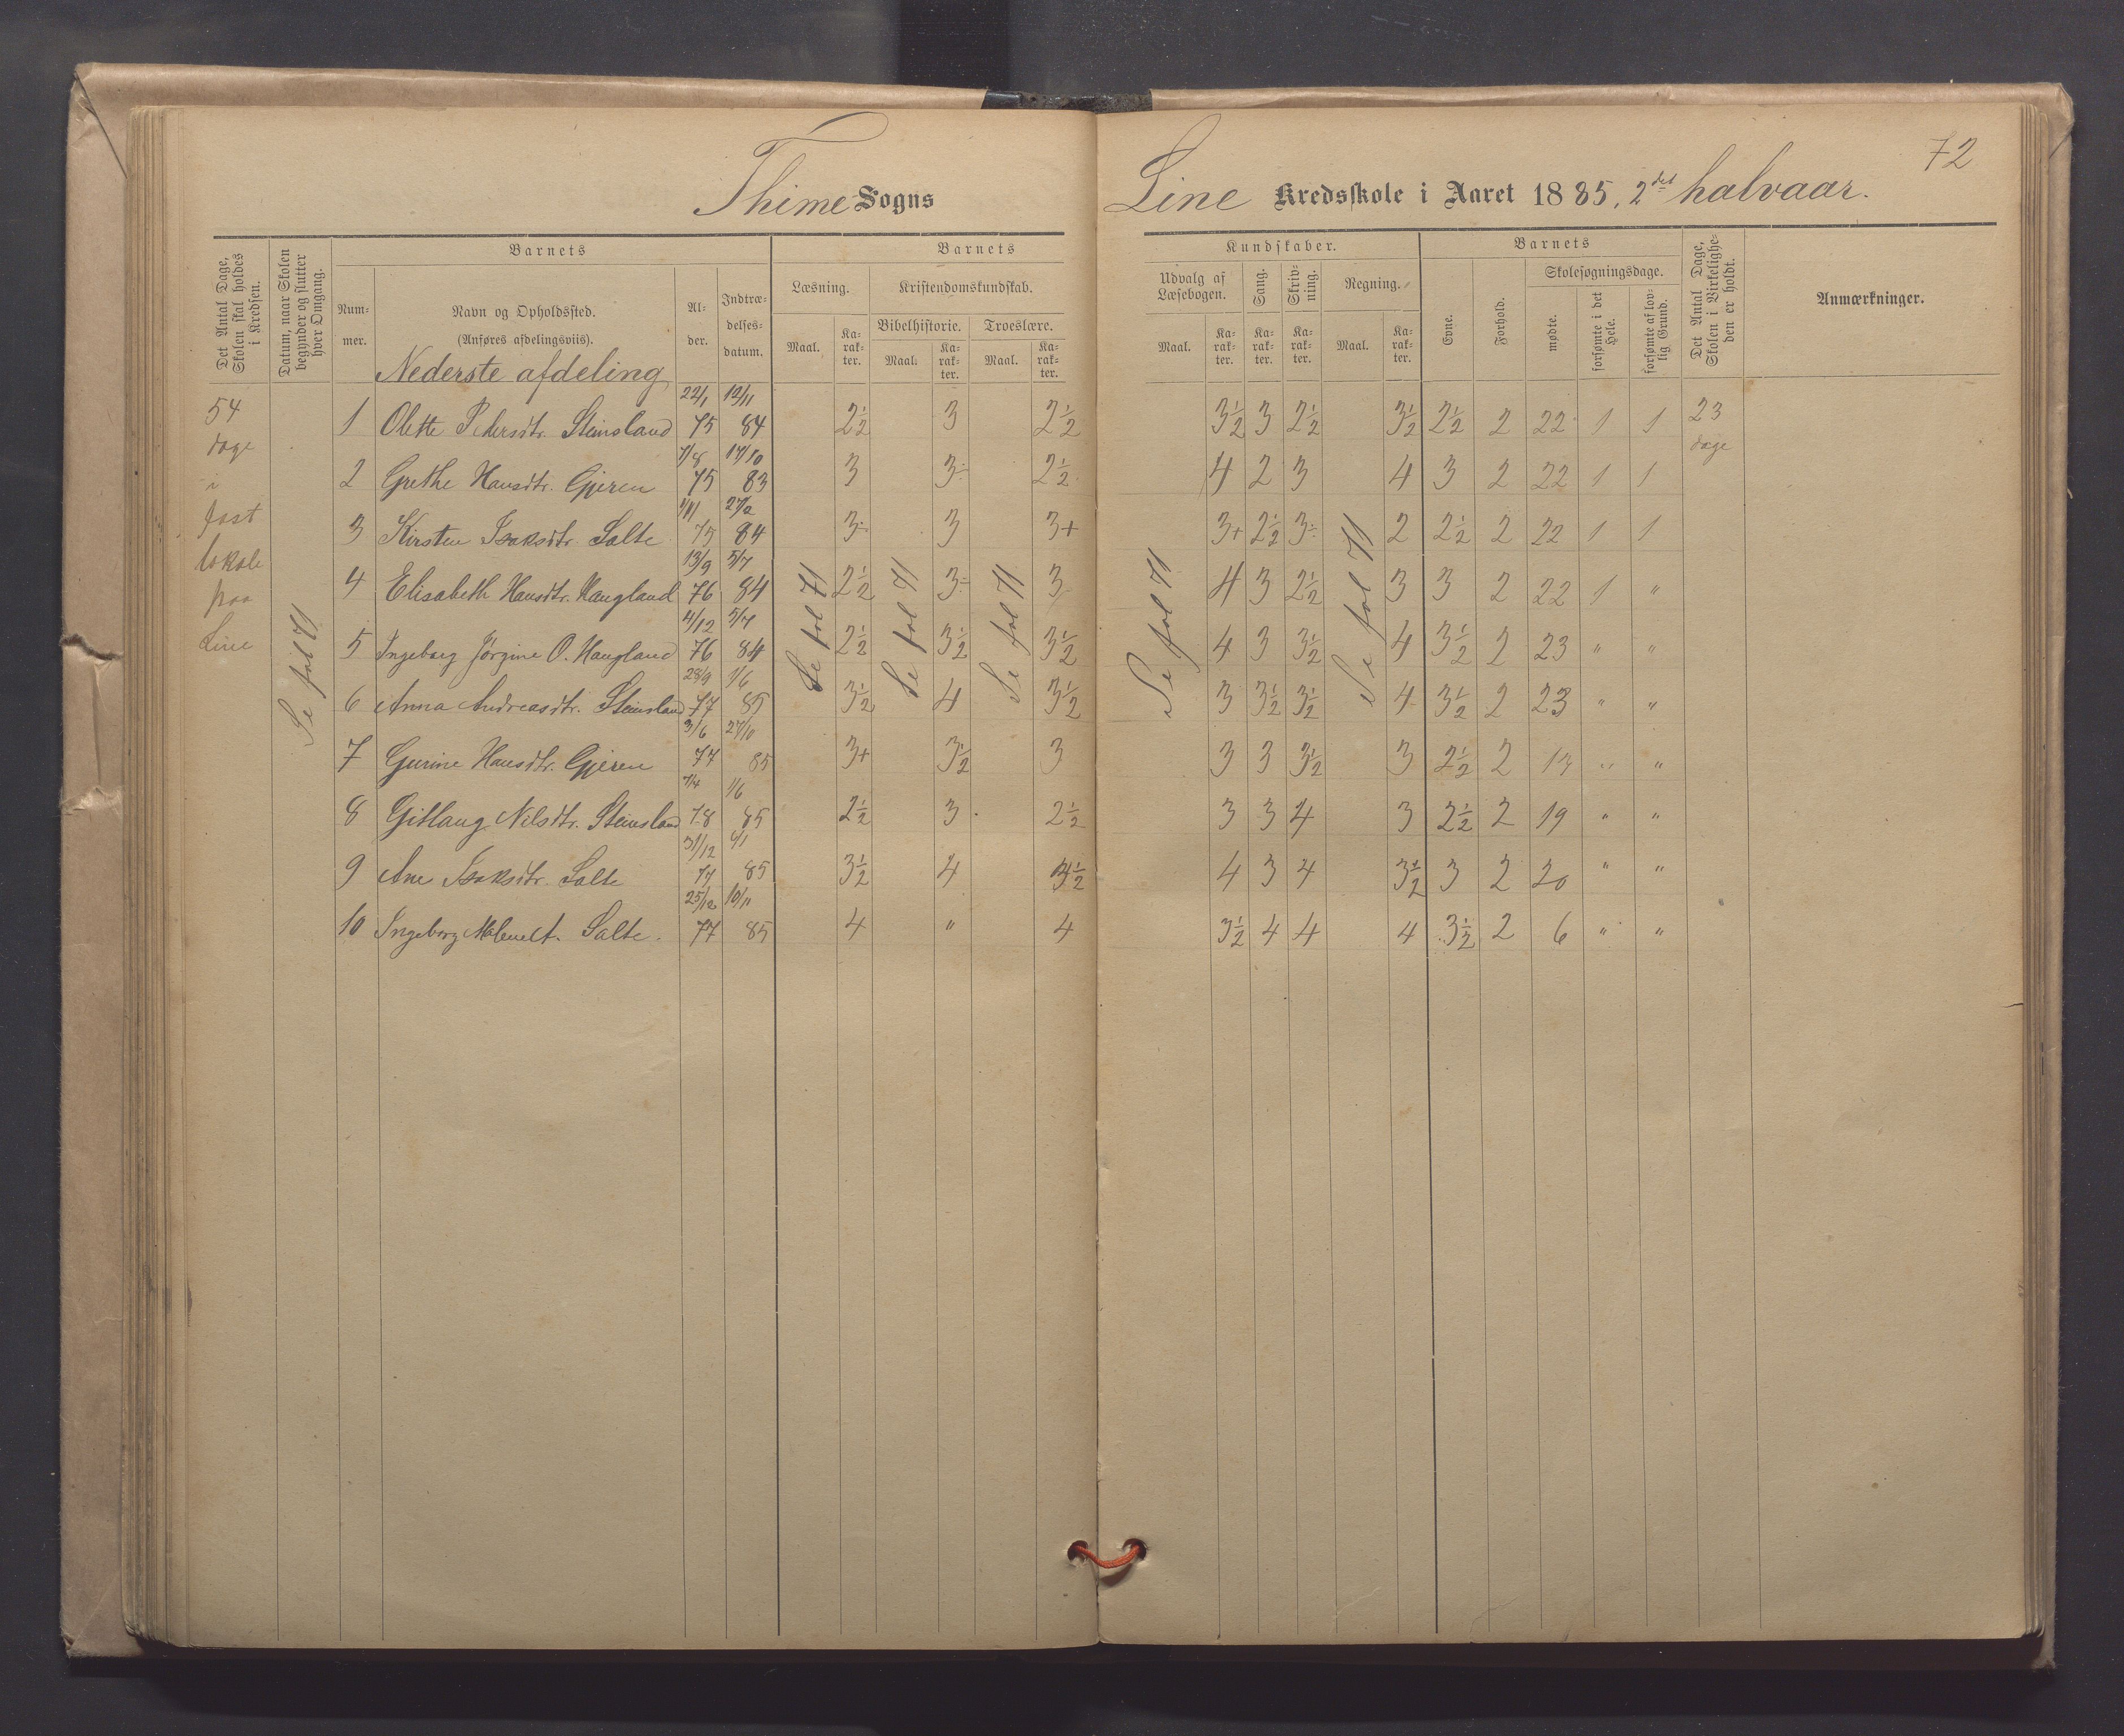 72
Thime Sogns
Line Kredsskole i Aaret 1885. 2det halvaar.
Det Antal Dage, Skolen skal holdes i Kredsen.
Datum, naar Skolen begynder og slutter hver Omgang.
Barnets
Nummer.
Navn og Opholdssted.
(Anføres afdelingsviis).
Alder.
Indtrædelsesdatum.
Barnets
Læsning.
Maal.
Karakter.
Kristendomskundskab.
Bibelhistorie.
Maal.
Karakter.
Troeslære.
Maal.
Karakter.
Kundskaber.
Udvalg af Læsebogen.
Maal.
Karakter.
Sang.
Karakter.
Skrivning.
Karakter.
Regning.
Maal.
Karakter.
Barnets
Evne.
Forhold.
Skolesøgningsdage.
mødte.
forsømte i det Hele.
forsømte af lovlig Grund.
Det Antal Dage, Skolen i Virkeligheden er holdt.
Anmærkninger.
Nederste afdeling
54 dage i fast lokale paa Line
Se fol 71
Se fol 71
Se fol 71
Se fol 71
Se fol 71
Se fol 71
23 dage
1 Olette Pedersdtr. Steinsland 22/1 75 12/11 84 2½ 3 2½ 3½ 3 2½ 3½ 2½ 2 22 1 1
2 Grethe Hansdtr. Gjeren 7/8 75 17/10 83 3 3÷ 2½ 4 2 3 4 3 2 22 1 1
3 Kirsten Isaksdtr. Salte 1/11 75 27/2 84 3÷ 3 3+ 3+ 2½ 3÷ 2 2½ 2 22 1 1
4 Elisabeth Hansdtr. Haugland 13/9 76 5/7 84 2½ 3÷ 3 4 3 2½ 3 3 2 22 1 "
5 Ingeborg Jørgine O. Haugland 4/12 76 5/7 84 2½ 3½ 3½ 4 3 3½ 4 3½ 2 23 " "
6 Anna Andreasdtr. Steinsland 28/9 77 1/6 85 3½ 4 3½ 3 3½ 3½ 4 3½ 2 23 " "
7 Gurine Hansdtr. Gjeren 3/6 77 27/10 85 3+ 3½ 3 3 3 3½ 3 2½ 2 13 " "
8 Gitlaug Nilsdtr. Steinsland 7/4 78 1/6 85 2½ 3 2½ 3 3 4 3 2½ 2 19 " "
9 Ane Isaksdtr. Salte 31/12 77 85 3½ 4 3½ 4 3 4 3½ 3 2 20 " "
10 Ingeborg Salte. 25/12 77 10/11 85 4 " 4 3½ 4 4 4 3½ 2 6 " "